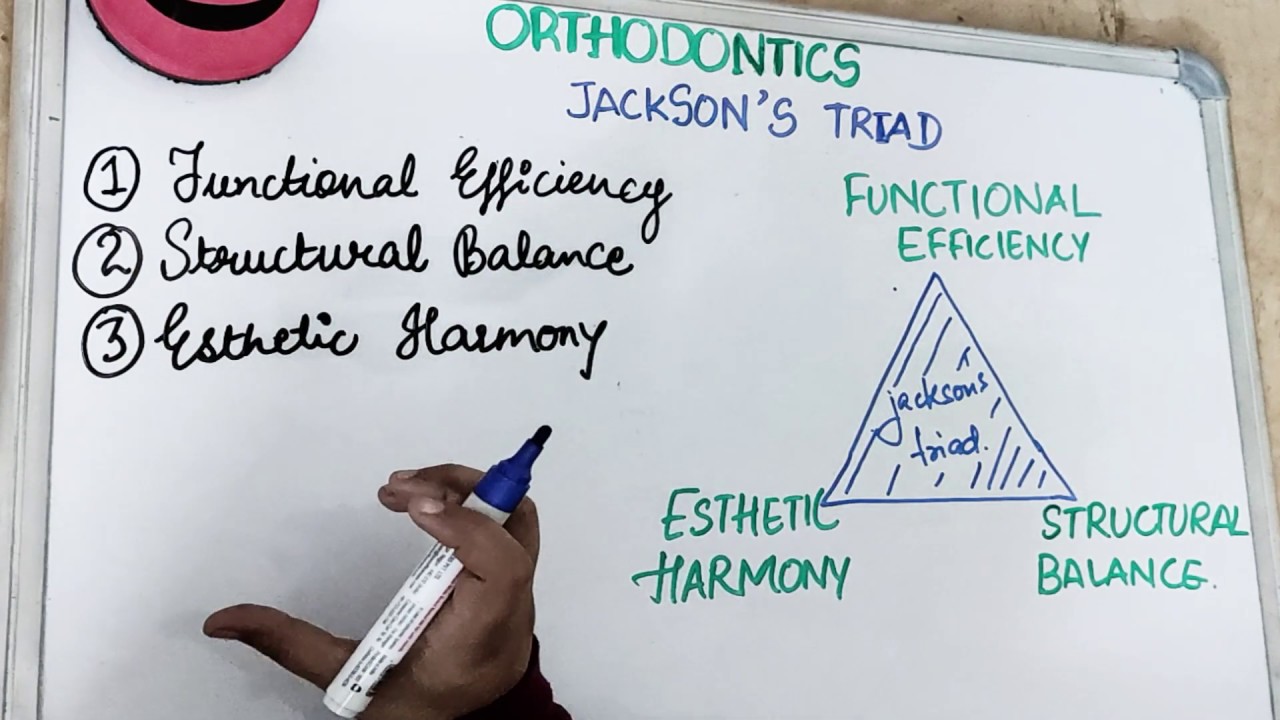 ORTHODONTICS
JACKSON'S TRIAD
① Functional Efficiency
② Structural Balance
③ Esthetic Harmony
FUNCTIONAL
EFFICIENCY
jacksons
triad.
ESTHETIC
HARMONY
STRUCTURAL
BALANCE.